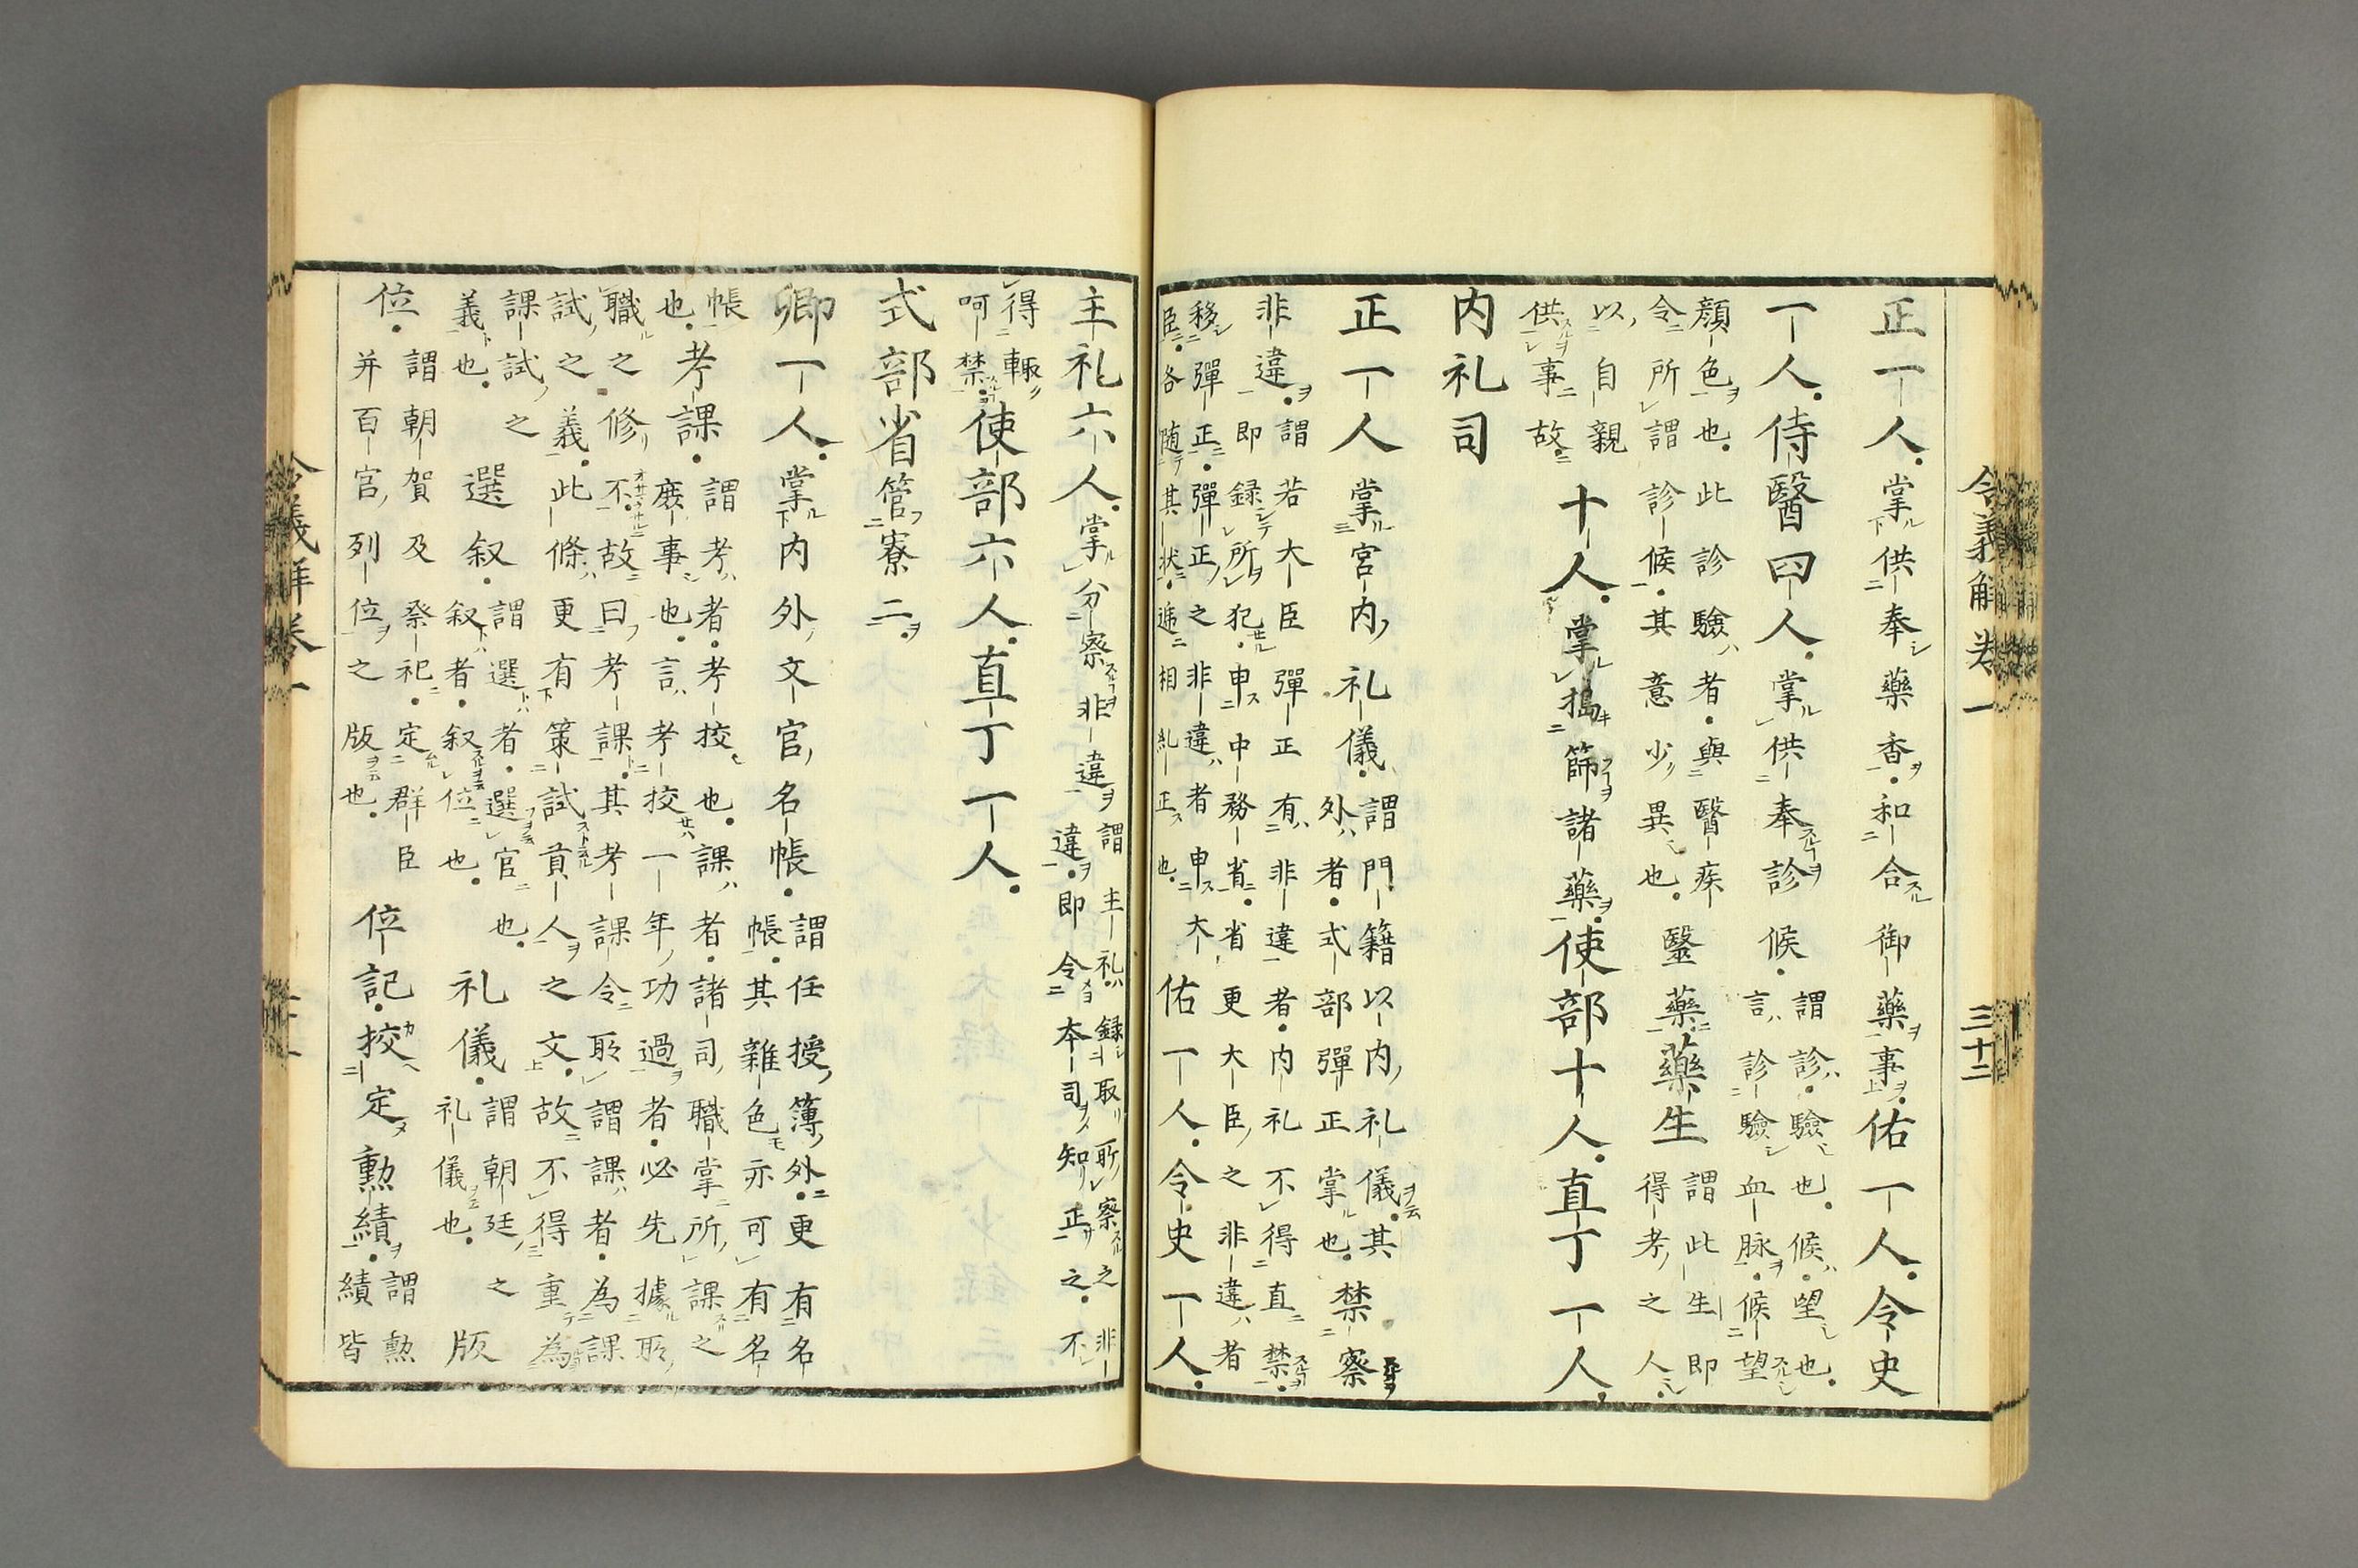 令義解卷一 三十二
正一人。掌供奉藥香。和合御藥事。佑一人。令史
一人。侍醫四人。掌供奉診候。謂診。驗也。候。望也。言診驗血脉。候望
顔色也。此診驗者。與醫疾令所謂診候。其意少異也。毉藥。藥生謂此生即得考之人
以自親供事故。十人。掌搗篩諸藥。使部十人。直丁一人。
内礼司
正一人掌宮内礼儀。謂門籍以内礼儀。其外者。式部彈正掌也。禁察
非違。謂若大臣彈正有非違者。内礼不得直禁。即録所犯。申中務省。省更大臣之非違者
移彈正。彈正之非違者申大臣。各随其状。逓相糺正也。佑一人。令史一人。
主礼六人。掌分察非違謂主礼。録取所察之非違。即令本司知正之。不
得輙呵禁。使部六人。直丁一人。
式部省管寮二。
卿一人。掌内外文官名帳。謂任授簿外。更有名帳。其雜色亦可有名
帳也。考課。謂考者。考挍也。課者。諸司職掌所課之廢事也。言考挍一年功過者。必先據所
職之修不。故曰考課。其考課令所謂課者。為課試之義。此條更有策試貢人之文。故不得重為
課試之義也。選叙。謂選者。選官也。叙者。叙位也。礼儀。謂朝廷之礼儀也。版
位。謂朝賀及祭祀。定群臣并百官列位之版也。位記。挍定勲績。謂勲績皆
令義解卷一